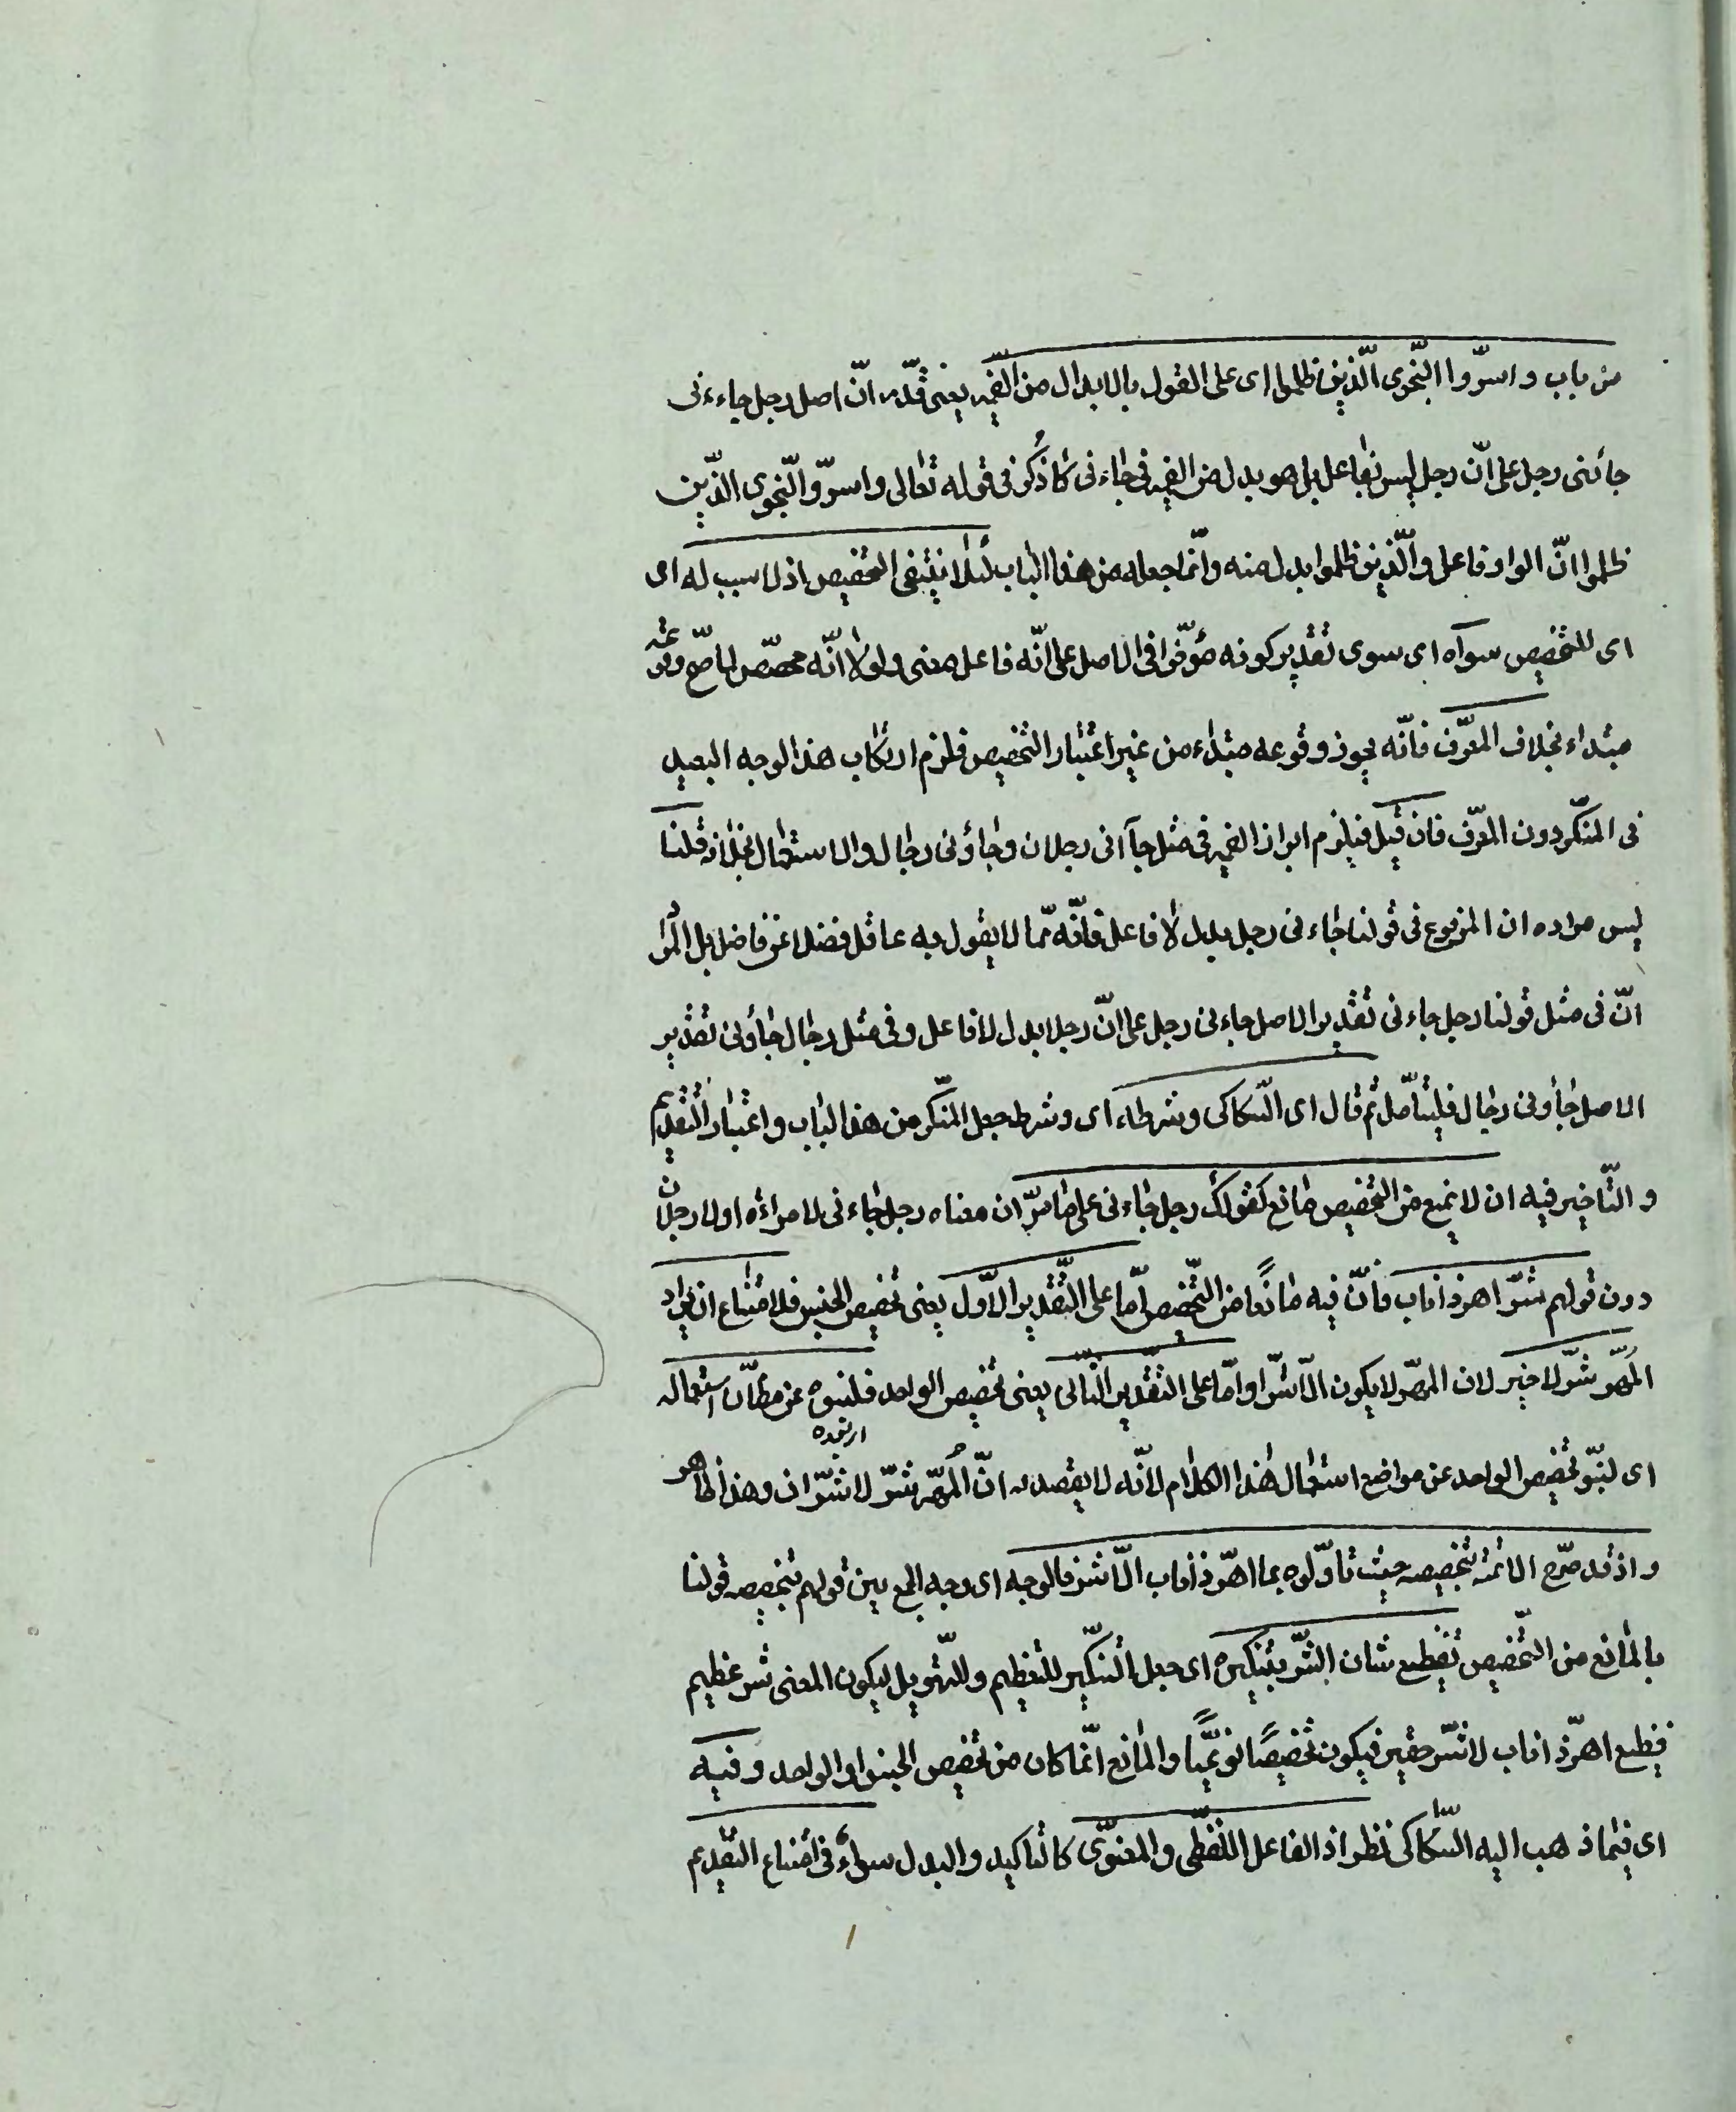 من باب و اسرّوا النّجوى الّذين ظلموا اى على القول بالابدال من الضّمير يعنى قدّر انّ اصل رجل جاءنى
جائنى رجل على انّ رجل ليس بفاعل بل هو بدل من الضمير فى جاءنى كما ذُكر فى قوله تعالى و اسرّوا النّجوى الذّين
ظلموا انّ الواو فاعل و الّذين ظلموا بدل منه و انّما جعله من هذا الباب لئلا ينتفى التخصيص اذ لا سبب له اى
اى للتخصيص سواه اى سوى تقدير كونه مؤخّرا فى الاصل على انّه فاعل معنى و لو لا انّه مخصّص لما صحّ وقوعه
مبتداء بخلاف المعرّف فانّه يجوز وقوعه مبتداء من غير اعتبار التخصيص فلزم ارتكاب هذا الوجه البعيد
فى المنكّر دون المعرّف فان قيل فيلزم ابراز الضمير فى مثل جاآنى رجلان و جاؤنى رجال و الاستعمال بخلافه قلنا
ليس مراده ان المرفوع فى قولنا جاءنى رجل بدل لا فاعل فانّه ممّا لا يقول به عاقل فضلا عن فاضل بل المراد
انّ فى مثل قولنا رجل جاءنى تقدير الاصل جاءنى رجل على انّ رجلا بدل لا فاعل و فى مثل رجال جاؤنى تقدير
الاصل جاؤنى رجال فليتأمّل ثم قال اى السّكاكى و شرطه اى و شرط جعل المنكّر من هذا الباب و اعتبار التقديم
و التّاخير فيه ان لا يمنع من التخصيص مانع كقولك رجل جاءنى على ما مرّ ان معناه رجل جاءنى لا امراءه او لا رجلان
دون قولهم شرّ اهر ذا ناب فانّ فيه مانعًا من التّخصيص امّا على التّقدير الاوّل يعنى تخصيص الجنس فلامتناع ان يراد
المُهرّ شرّ لا خير لان المهرّ لا يكون الّا شرّا و امّا على التقدير الثّانى يعنى تخصيص الواحد فلنبوه عن مظانّ استعماله
اى لنبّو تخصيص الواحد عن مواضع استعمال هذا الكلام لانّه لا يقصد به انّ المُهرّ شرّ لا شرّان و هذا ظاهر
و اذ قد صرّح الائمّة بتخصيصه حيث تاوّلوه بما اهرّ ذا ناب الّا شرّ فالوجه اى وجه الجمع بين قولهم بتخصيصه و قولنا
بالمانع من التّخصيص تفظيع شان الشّر بتنكيره اى جعل التنكّير للتعظيم و للتّهويل ليكون المعنى شر عظيم
فظيع اهرّ ذا ناب لا شرّ حقير فيكون تخصيصًا نوعيًّا و المانع انّما كان من تخصيص الجنس او الواحد و فيه
اى فيما ذهب اليه السّكّاكى نظر اذ الفاعل اللّفظى و المعنوّى كالتاكيد و البدل سواء فى امتناع التّقديم